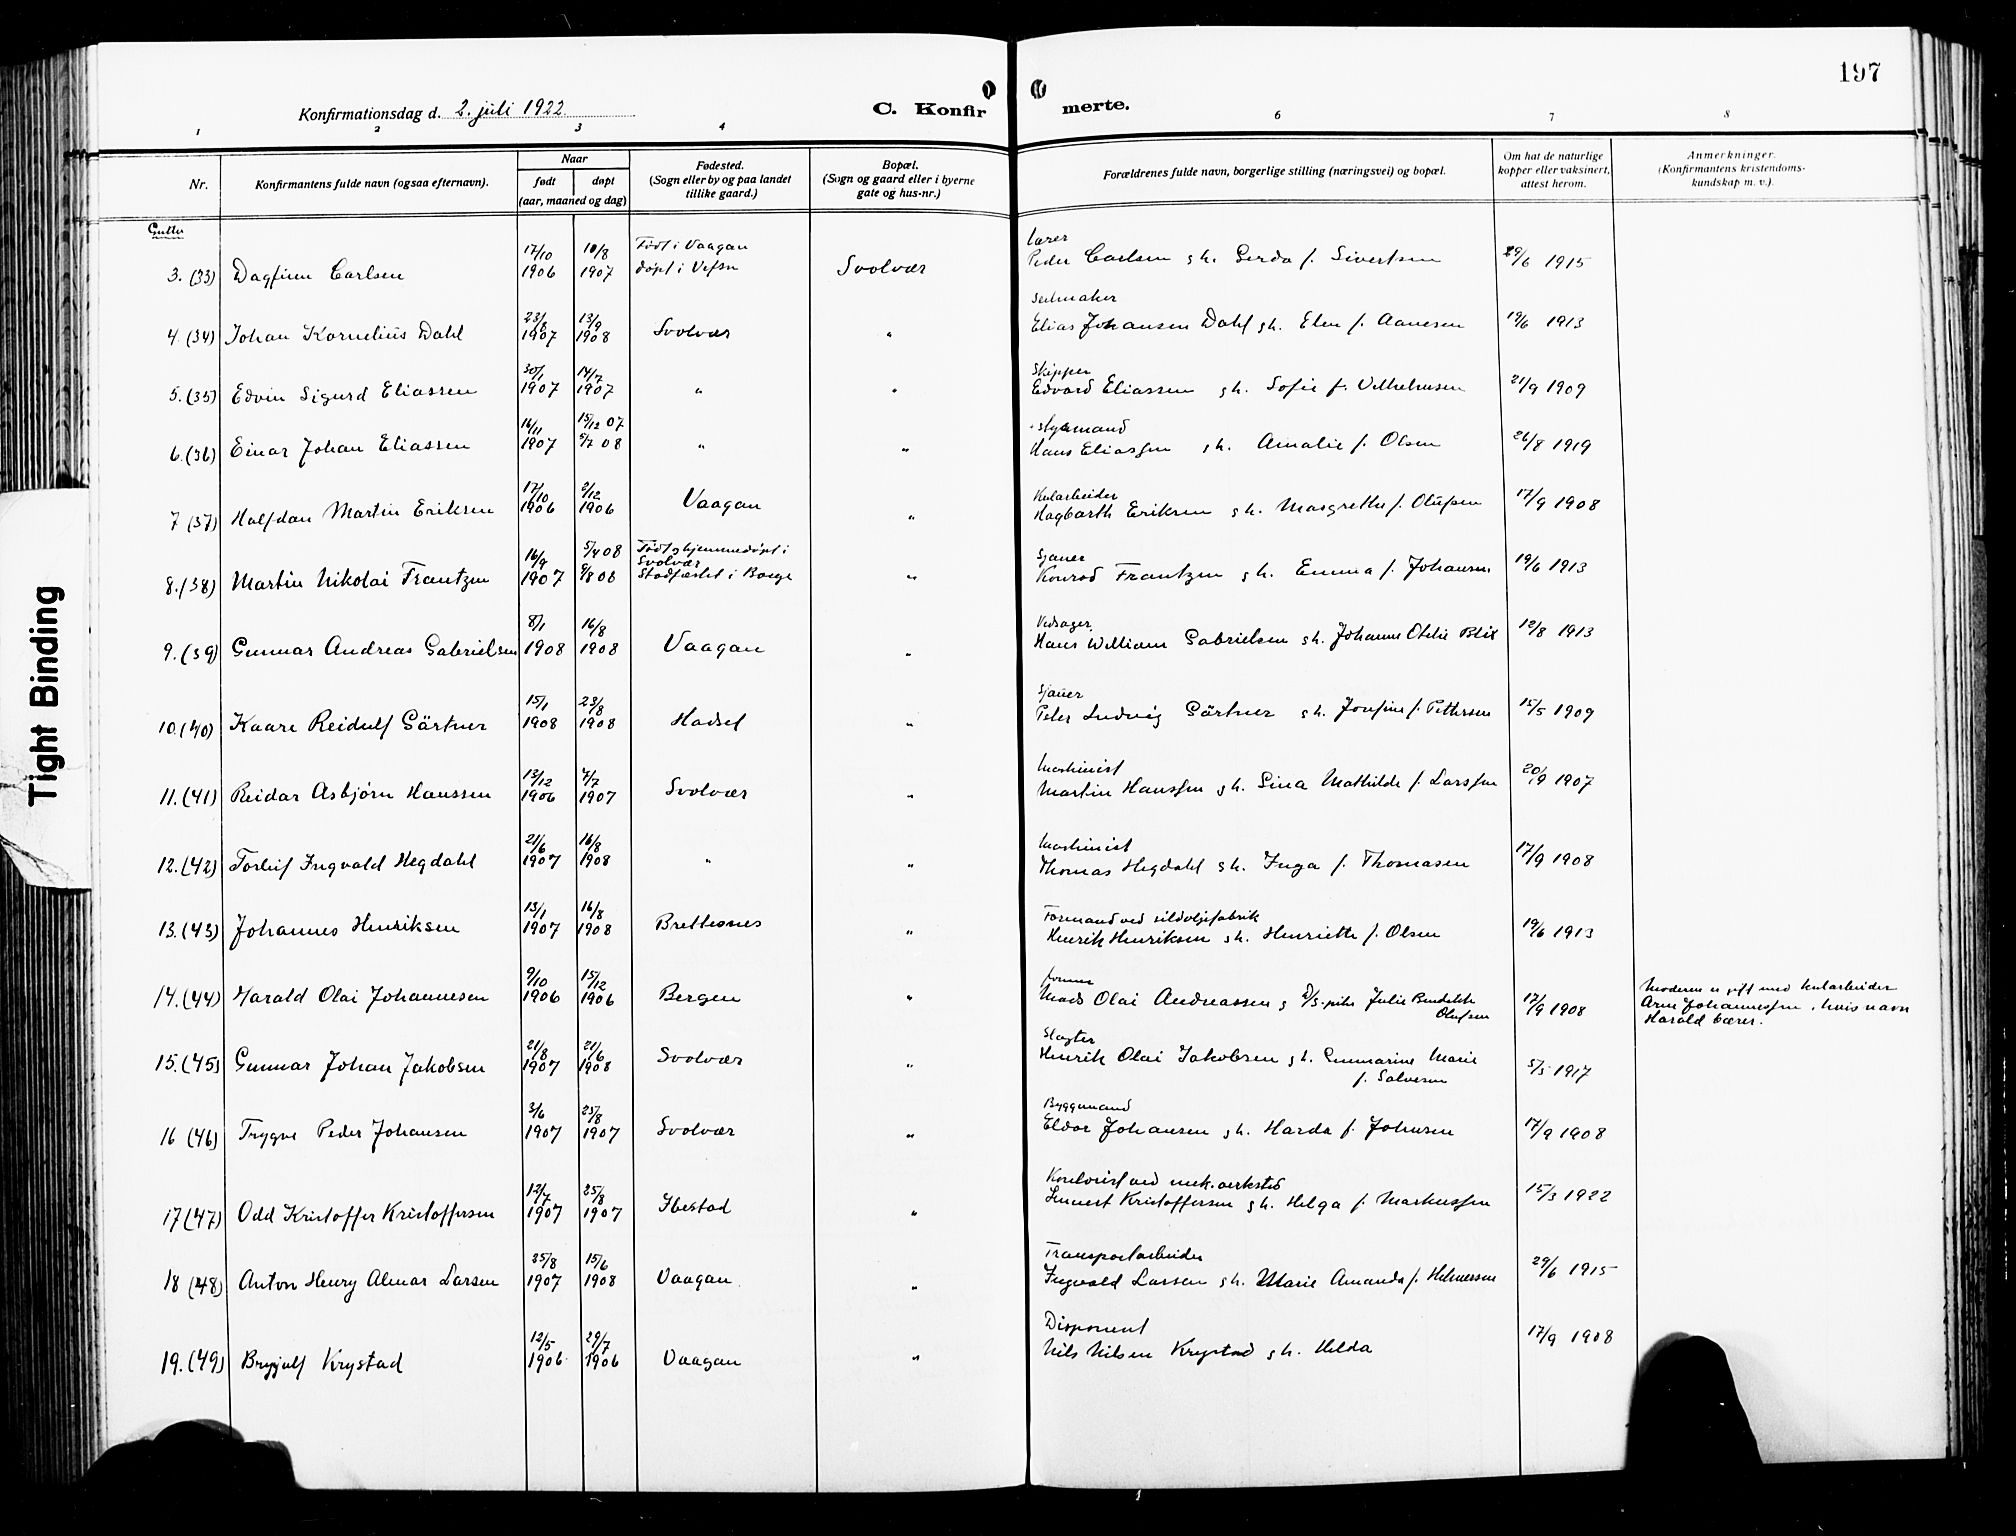 197
Konfirmationsdag d. 2. juli 1922.
C. Konfir merte.
1 2 3 4 6 7 8
Nr.
Konfirmantens fulde navn (ogsaa efternavn).
Naar
født døpt
(aar, maaned og dag)
Fødested.
(Sogn eller by og paa landet
tillike gaard.)
Bopæl.
(Sogn og gaard eller i byerne
gate og hus-nr.)
Forældrenes fulde navn, borgerlige stilling (næringsvei) og bopæl.
Om hat de naturlige
kopper eller vaksinert,
attest herom.
Anmerkninger.
(Konfirmantens kristendoms-
kundskap m. v.).
Gutter
17/10 10/8 Født i Vaagan lærer
3. (33) Dagfinn Carlsen 1906 1907 døpt i Vefsn Svolvær Peder Carlsen g h. Gerda f. Sivertsen 29/6 1915
23/8 13/9 Seilmaker
4. (34) Johan Kornelius Dahl 1907 1908 Svolvær " Elias Johansen Dahl g h. Elen f. Aanesen 19/6 1913
30/1 14/7 Skipper
5. (35) Edvin Sigurd Eliassen 1907 1907 " " Edvard Eliassen g h. Sofie f. Vilhelmsen 21/9 1909
16/11 15/12 07 Styrmand
6. (36) Einar Johan Eliassen 1907 5/7 08 " " Hans Eliassen g h. Amalie f. Olsen 26/8 1919
17/10 2/12 Kularbeider
7 (37) Halfdan Martin Eriksen 1906 1906 Vaagan " Hagbarth Eriksen g h. Margrethe f. Olufsen 17/9 1908
16/9 5/4 08 Født og hjemmedøpt i Svolvær Sjauer
8. (38) Martin Nikolai Frantzen 1907 9/8 08 Stadfæstet i Borge " Konrad Frantzen g h. Emma f. Johansen 19/6 1913
8/1 16/8 Vedsager
9. (39) Gunnar Andreas Gabrielsen 1908 1908 Vaagan " Hans William Gabrielsen g h. Johanne Otelie Blix 12/8 1913
15/1 23/8 Sjauer
10. (40) Kaare Reidulf Gärtner 1908 1908 Hadsel " Peter Ludvig Gärtner g h. Josefine f. Pettersen 15/5 1909
13/12 7/7 Maskinist
11. (41) Reidar Asbjørn Hanssen 1906 1907 Svolvær " Martin Hanssen g h. Lina Mathilde f. Larssen 20/9 1907
21/6 16/8 Maskinist
12. (42) Torleif Ingvald Hegdahl 1907 1908 " " Thomas Hegdahl g h. Inga f. Thomasen 17/9 1908
13/1 16/8 Formand ved sildoljefabrik
13. (43) Johannes Henriksen 1907 1908 Brettesnes " Henrik Henriksen g h. Henriette f. Olsen 19/6 1913
9/10 15/12
14. (44) Harald Olai Johannesen 1906 1906 Bergen " Mads Olai Andreassen g pike Julie Bendikte Olufsen 17/9 1908 Moderen er gift med kularbeider
Arne Johannessen, hvis navn
Harald bærer.
21/8 21/6 Slagter
15. (45) Gunnar Johan Jakobsen 1907 1908 Svolvær " Henrik Olai Jakobsen g h. Gunnarine Marie f. Salvesen 5/5 1917
3/6 25/8 Byggmand
16 (46) Trygve Peder Johansen 1907 1907 Svolvær " Eldor Johansen g h. Harda f. Johnsen 17/9 1908
12/7 25/8 Kontorist ved mek. verksted
17 (47) Odd Kristoffer Kristoffersen 1907 1907 Ibestad " Kristoffersen g h. Helga f. Markussen 15/3 1922
25/8 15/6 Transportarbeider
18 (48) Anton Henry Almar Larsen 1907 1908 Vaagan " Ingvald Larsen g h. Marie Amanda f. Helmersen 29/6 1915
12/5 29/7 Disponent
19. (49) Brynjulf Krystad 1906 1906 Vaagan " Nils Nilsen Krystad g h. Hilda 17/9 1908
Tight Binding